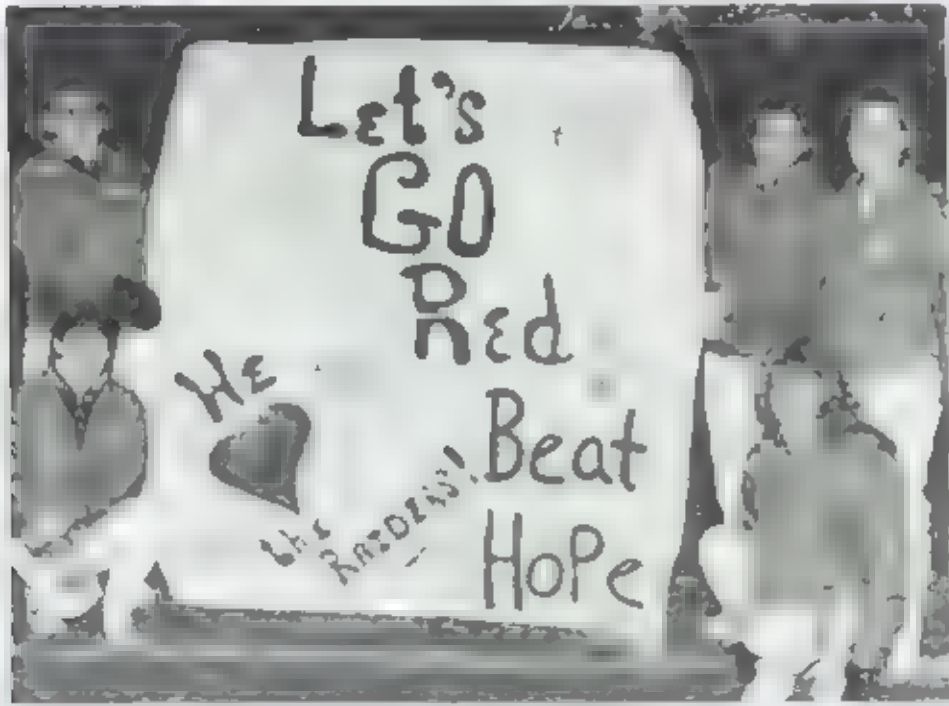 Let's
GO
Red
Beat
HOPe
HE
the
RAIDERS!